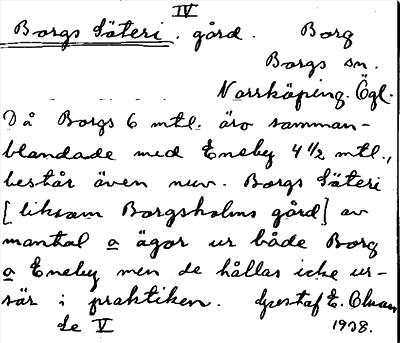 IV
Borgs Säteri. gård. Borg
Borgs sn.
Norrköping. Ögl.
Då Borgs 6 mtl. äro samman-
blandade med Eneby 4 1/2 mtl.,
består även nuv. Borgs Säteri
[liksom Borgsholms gård] av
mantal o ägor ur både Borg
o Eneby men de hållas icke ur-
sär i praktiken. Gustaf E. Olsson
Se V 1938.